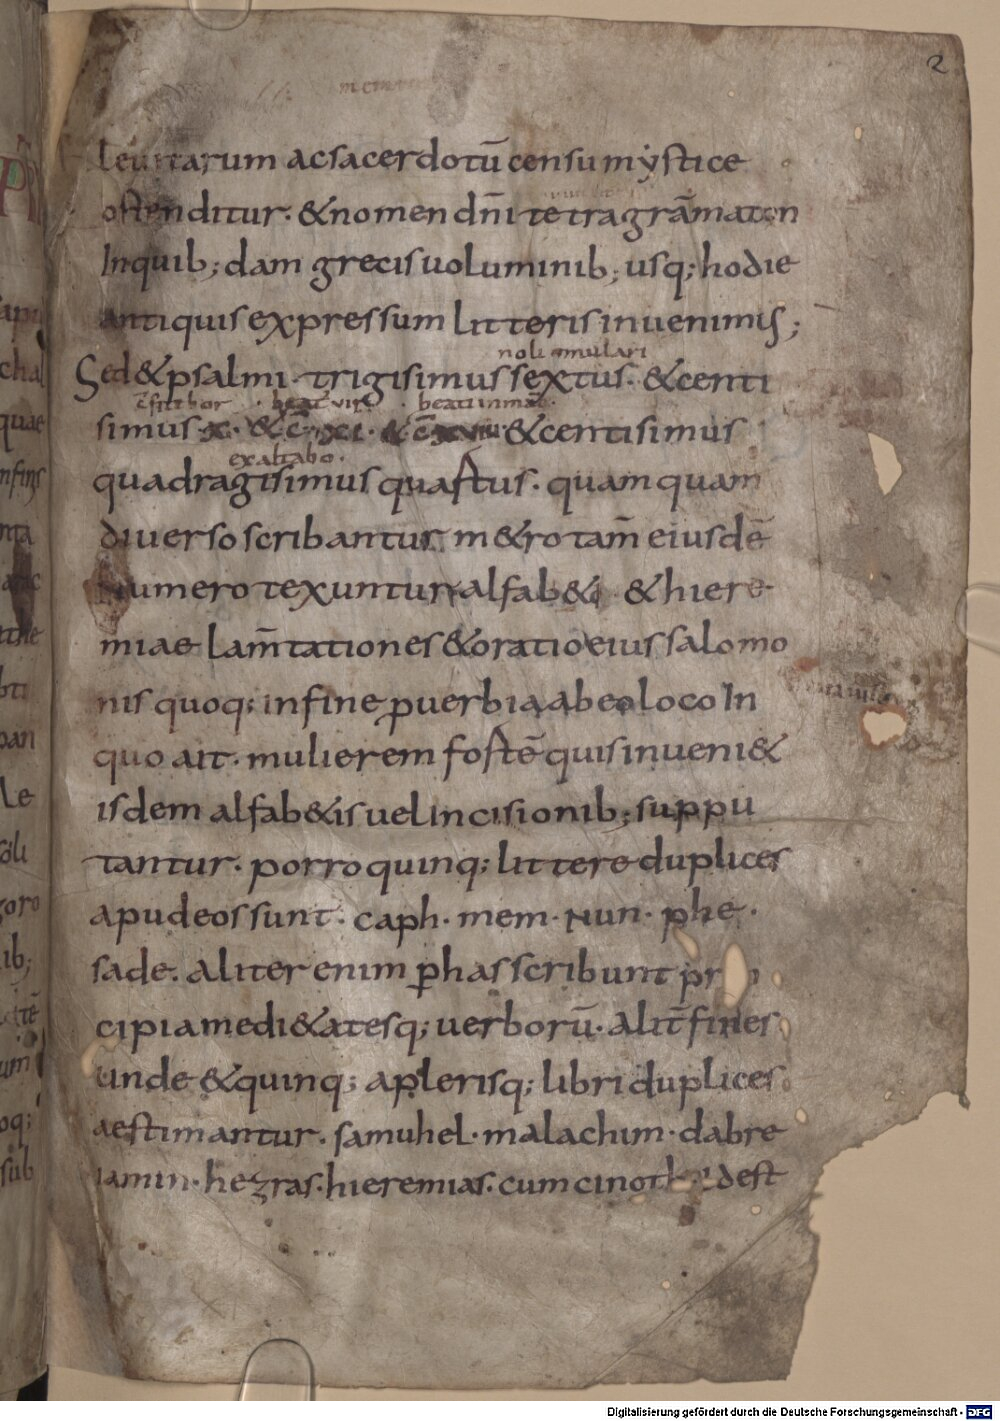 2
leuitarum acsacerdotū censu mystice
ostenditur· & nomen dn̄i tetragrāmaton
Inquib; dam grecis uoluminib; usq; hodie
antiquis expressum litteris inuenimus;
noli emulari
Sed & psalmi· trigisimus sextus· & centi
cōfitebor · beat' uir · beati inmac̄·
simus x· & c̄ xi· & c̄ xviii· & centisimus
exaltabo·
quadragisimus quartus· quam quam
diuerso scribantur m&ro tam̄ eiusdē
Numero texuntur alfab&i & hiere
miae lam̄tationes & oratio eius salomo
nis quoq; infine ꝓuerbia abeo loco In
quo ait· mulierem fortē quis inueni&
isdem alfab&is uel Incisionib; suppu
tantur· porro quinq; littere duplices
apudeos sunt· caph· mem· Nun· phe·
sade· aliter enim ꝑ has scribunt pr
cipia medi&atesq; uerborū· alit̄ fines
unde & quinq; aplerisq; libri duplices
aestimantur· samuhel· malachim· dabre
iamin· hezras· hieremias· cum cinoth idest
Digitalisierung gefördert durch die Deutsche Forschungsgemeinschaft - DFG